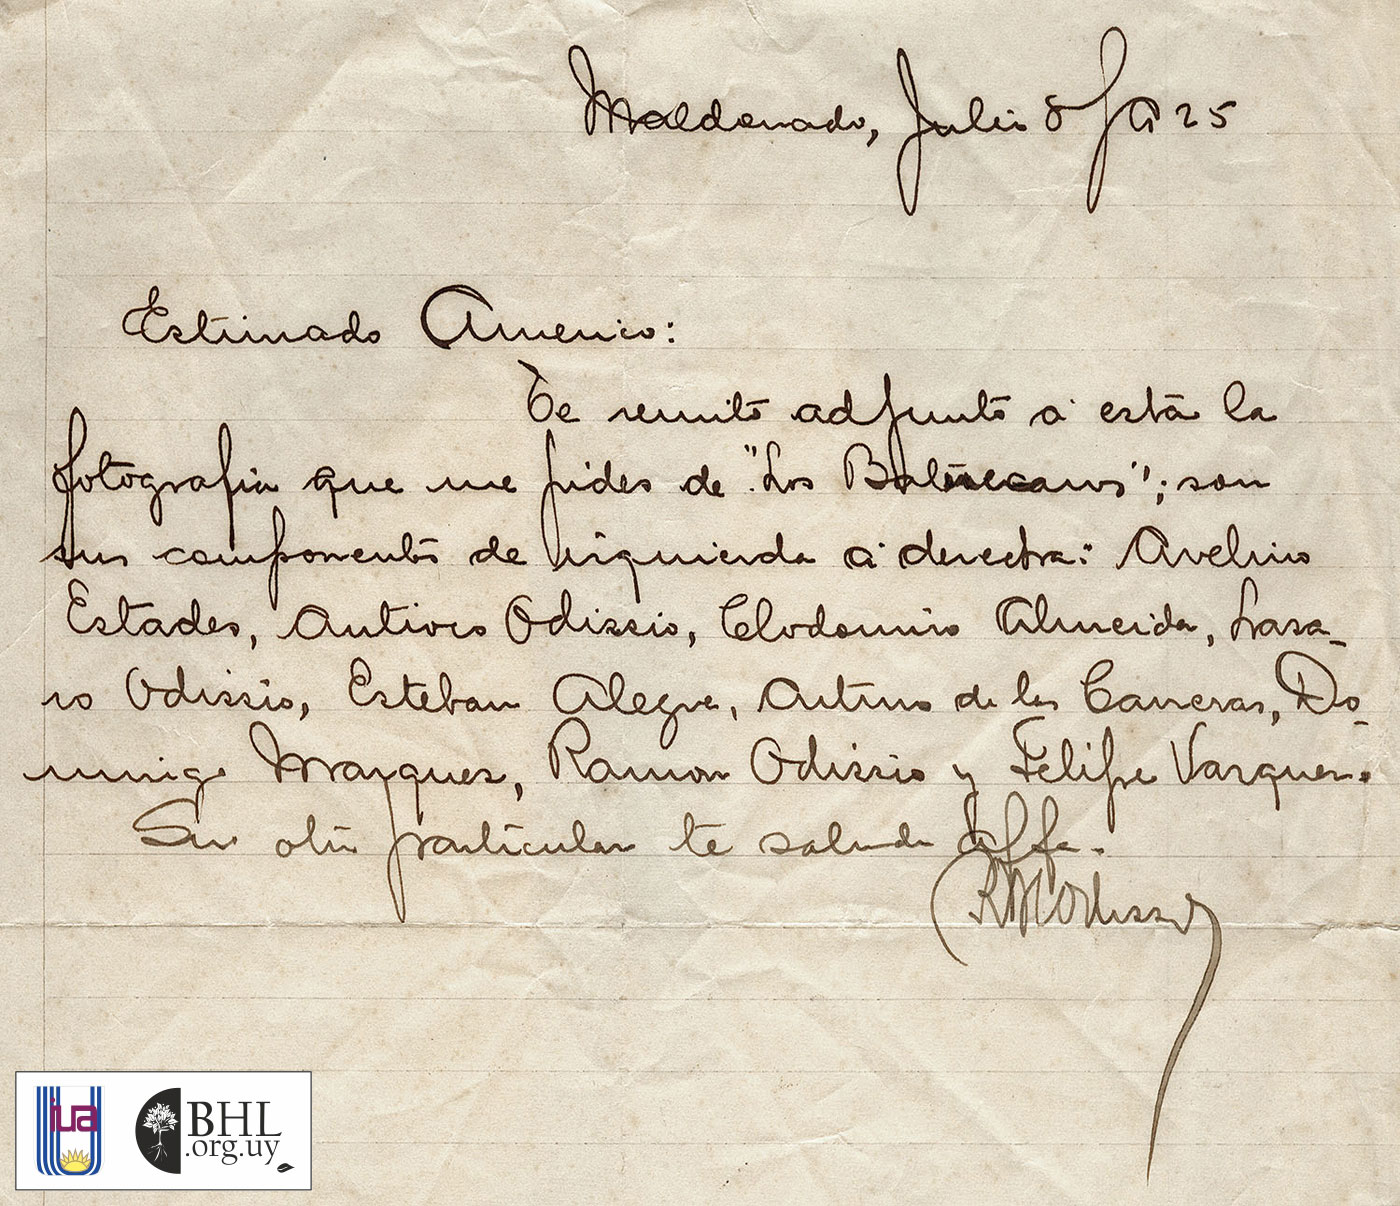 Maldonado, Julio 8/925
Estimado Americo:
Te remito adjunto á ésta la
fotografia que me pides de "Los
sus componentes de izquierda á derecha: Avelino
Estades, Antivio Odissio, Clodomiro Almeida, Lasa-
ro Odissio, Esteban Alegre, Arturo de las Carreras, Do-
mingo Marquez, Ramon Odissio y Felipe Vasquez.
Sin otro particular te saluda affo.
RMOdissio
iua
BHL
.org.uy